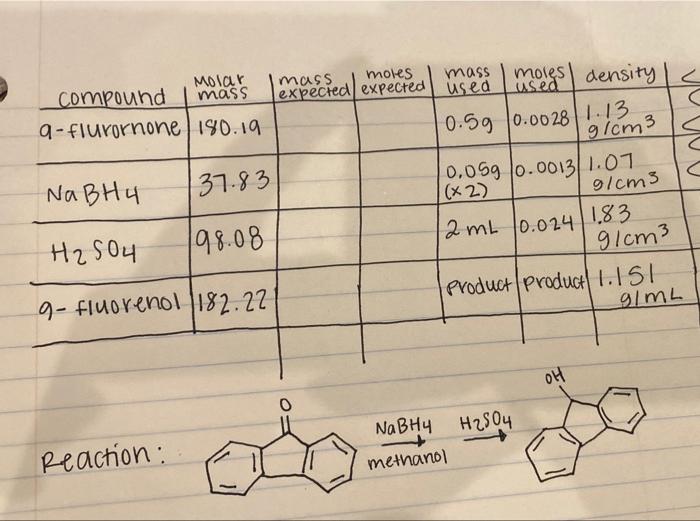 compound | Molar mass | mass expected | moles expected | mass used | moles used | density
9-flurornone | 180.19 | | | 0.5g | 0.0028 | 1.13 g/cm3
NaBH4 | 37.83 | | | 0.05g (x2) | 0.0013 | 1.07 g/cm3
H2SO4 | 98.08 | | | 2 mL | 0.024 | 1.83 g/cm3
9-fluorenol | 182.22 | | | product | product | 1.151 g/mL
Reaction: O NaBH4 methanol H2SO4 OH